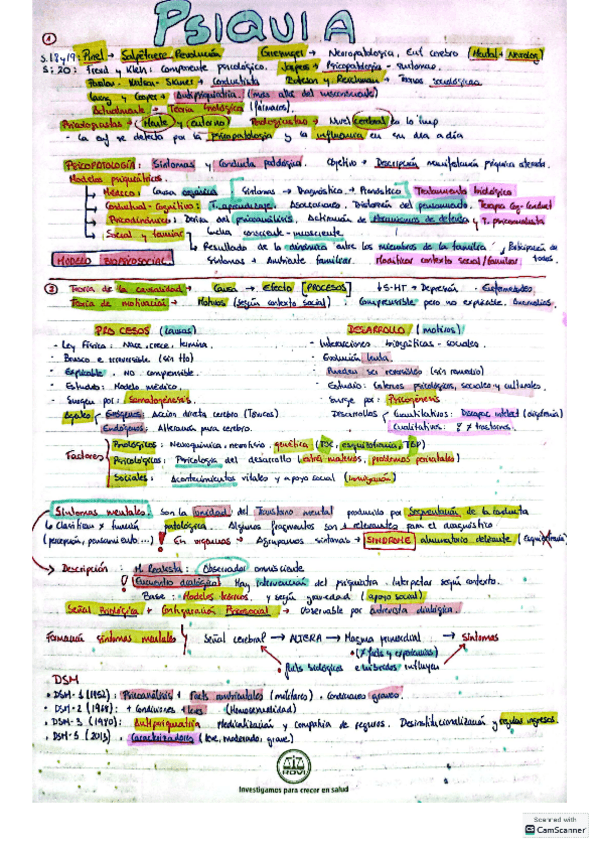 PSIQUIA
① S. 18 y 19: Pinel → Salpêtriere Revolución Griesinger → Neuropatología, Enf cerebro (Mental = Neurolog)
S. 20: Freud y Klein: Componente psicológico. Jaspers → Psicopatología - síntomas.
Pavlov - Watson - Skinner → Conductista
Laing y Cooper → Antipsiquiatría. (mas alla del
Actualmente → Teoría biológica (fármacos).
Psicologistas → Mente y entorno Biologistas → Nivel cerebral es lo imp
- La enf se detecta por la psicopatología y la influencia en su día a día
PSICOPATOLOGÍA: Síntomas y Conducta patológica. Objetivo → Descripción manifestación psíquica alterada.
Modelos psiquiátricos.
→ Médico: Causa orgánica Síntomas → Diagnóstico → Pronóstico Tratamiento biológico
→ Conductual-Cognitivo: T. aprendizaje. Asociaciones. Distorsión del pensamiento. Terapia Cog-Conduct
→ Psicodinámico: Deriva del psicoanálisis. Activación de Mecanismos de defensa y T. psicoanalista
Lucha consciente-inconsciente.
→ Social y familiar → Resultado de la dinámica entre los miembros de la familia Participación de todos.
MODELO BIOPSICOSOCIAL Síntomas → Ambiente familiar. Modificar contexto social/familiar
② Teoría de la causalidad → Causa → Efecto [PROCESOS] ↓5-HT → Depresión. Enfermedades
Teoría de motivación → Motivos (según contexto social). Comprensible pero no explicable.
PROCESOS (causas)
- Ley Física: Nace, crece, termina.
- Brusco e irreversible (sin tto)
- Explicable, no comprensible.
- Estudio: Modelo médico.
- Surgen por: Somatogénesis.
Exógenos: Acción directa cerebro (Tóxicos)
Endógenos: Alteración para cerebro.
DESARROLLO (motivos)
- Interacciones biográficas - sociales.
- Evolución lenta.
- Pueden ser reversibles (sin remedio)
- Estudio: Criterios psicológicos, sociales y culturales.
- Surge por: Psicogénesis
- Desarrollos Cuantitativos: Discapac intelect
Cualitativos: trastornos.
Factores
Biológicos: Neuroquímica, neurofisio, genética (TOC, esquizofrenia, TBP)
Psicológicos: Psicología del desarrollo (estrés materno, problemas perinatales)
Sociales: Acontecimientos vitales y apoyo social (inmigración)
Síntomas mentales son la unidad del Trastorno mental producido por Segmentación de la conducta patológica. Algunos fragmentos son + relevantes para el diagnóstico
Clasifican x función (percepción, pensamiento...) ! En orgánicas → Agrupamos síntomas → SINDROME alucinatorio delirante
→ Descripción: M. Realista: Observador omnisciente
! Encuentro dialógico: Hay intervención del psiquiatra. Interpretar según contexto.
Base: Modelos teóricos. y según gravedad (apoyo social)
Señal Biológica + Configuración Psicosocial → Observable por entrevista dialógica.
Formación síntomas mentales Señal cerebral → ALTERA → Magma primordial → Síntomas
(x facts y experiencias)
facts biológicos e heredados influyen
DSM
• DSM-1 (1952): Psicoanálisis + Facts ambientales (militares). Condiciones graves.
• DSM-2 (1968): + Condiciones + leves (Homosexualidad)
• DSM-3 (1980): Antipsiquiatría Medicalización y compañía de seguros. Desinstitucionalización y regular ingresos.
• DSM-5 (2013): Caracterizadores (leve, moderado, grave)
ROVI
Investigamos para crecer en salud
Scanned with
CamScanner